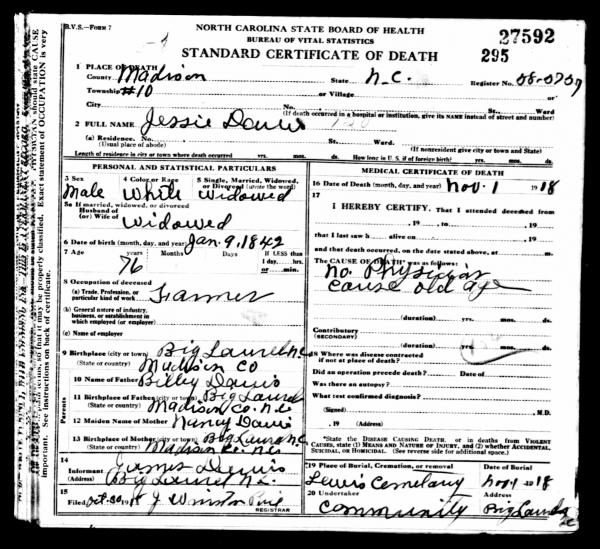 B.V.S.—FORM 7
NORTH CAROLINA STATE BOARD OF HEALTH
BUREAU OF VITAL STATISTICS
STANDARD CERTIFICATE OF DEATH
27592
295
1 PLACE OF DEATH
County Madison State N.C. Register No.
Township #10 or Village
City No. St. Ward
(If death occurred in a hospital or institution, give its NAME instead of street and number)
2 FULL NAME Jessie Davis
(a) Residence. No. St. Ward.
(Usual place of abode) (If nonresident give city or town and State)
Length of residence in city or town where death occurred yrs. mos. ds. How long in U. S. if of foreign birth? yrs. mos. ds.
PERSONAL AND STATISTICAL PARTICULARS
3 Sex 4 Color or Race 5 Single, Married, Widowed, or Divorced (write the word)
Male White Widowed
5a If married, widowed, or divorced
Husband of
(or) Wife of Widowed
6 Date of birth (month, day, and year) Jan. 9, 1842
7 Age Years Months Days If LESS than
76 1 day, hrs.
or min.
8 Occupation of deceased
(a) Trade, Profession, or
particular kind of work Farmer
(b) General nature of industry,
business, or establishment in
which employed (or employer)
(c) Name of employer
9 Birthplace (city or town) Big Laurel N.C.
(State or country) Madison Co
10 Name of Father Billey Davis
11 Birthplace of Father (city or town) Big Laurel
(State or country) Madison Co. N.C.
Parents
12 Maiden Name of Mother Nancy Davis
13 Birthplace of Mother (city or town) Big Laurel N.C.
(State or country) Madison Co. N.C.
14
Informant James Davis
(Address) Big Laurel N.C.
15
Filed Oct. 30, 19 J Winston
REGISTRAR
MEDICAL CERTIFICATE OF DEATH
16 Date of Death (month, day, and year) Nov. 1 1918
17
I HEREBY CERTIFY, That I attended deceased from
, 19 , to , 19
that I last saw h alive on , 19
and that death occurred, on the date stated above, at m.
The CAUSE OF DEATH* was as follows:
No Physician
Cause old age
(duration) yrs. mos. ds.
Contributory
(SECONDARY)
(duration) yrs. mos. ds.
18 Where was disease contracted
if not at place of death?
Did an operation precede death? Date of
Was there an autopsy?
What test confirmed diagnosis?
(Signed) , M.D.
, 19 (Address)
*State the DISEASE CAUSING DEATH, or in deaths from VIOLENT CAUSES, state (1) MEANS AND NATURE OF INJURY, and (2) whether ACCIDENTAL, SUICIDAL, or HOMICIDAL. (See reverse side for additional space.)
19 Place of Burial, Cremation, or removal Date of Burial
Lewis Cemetary Nov. 1 1918
20 Undertaker
Community Big Laurel